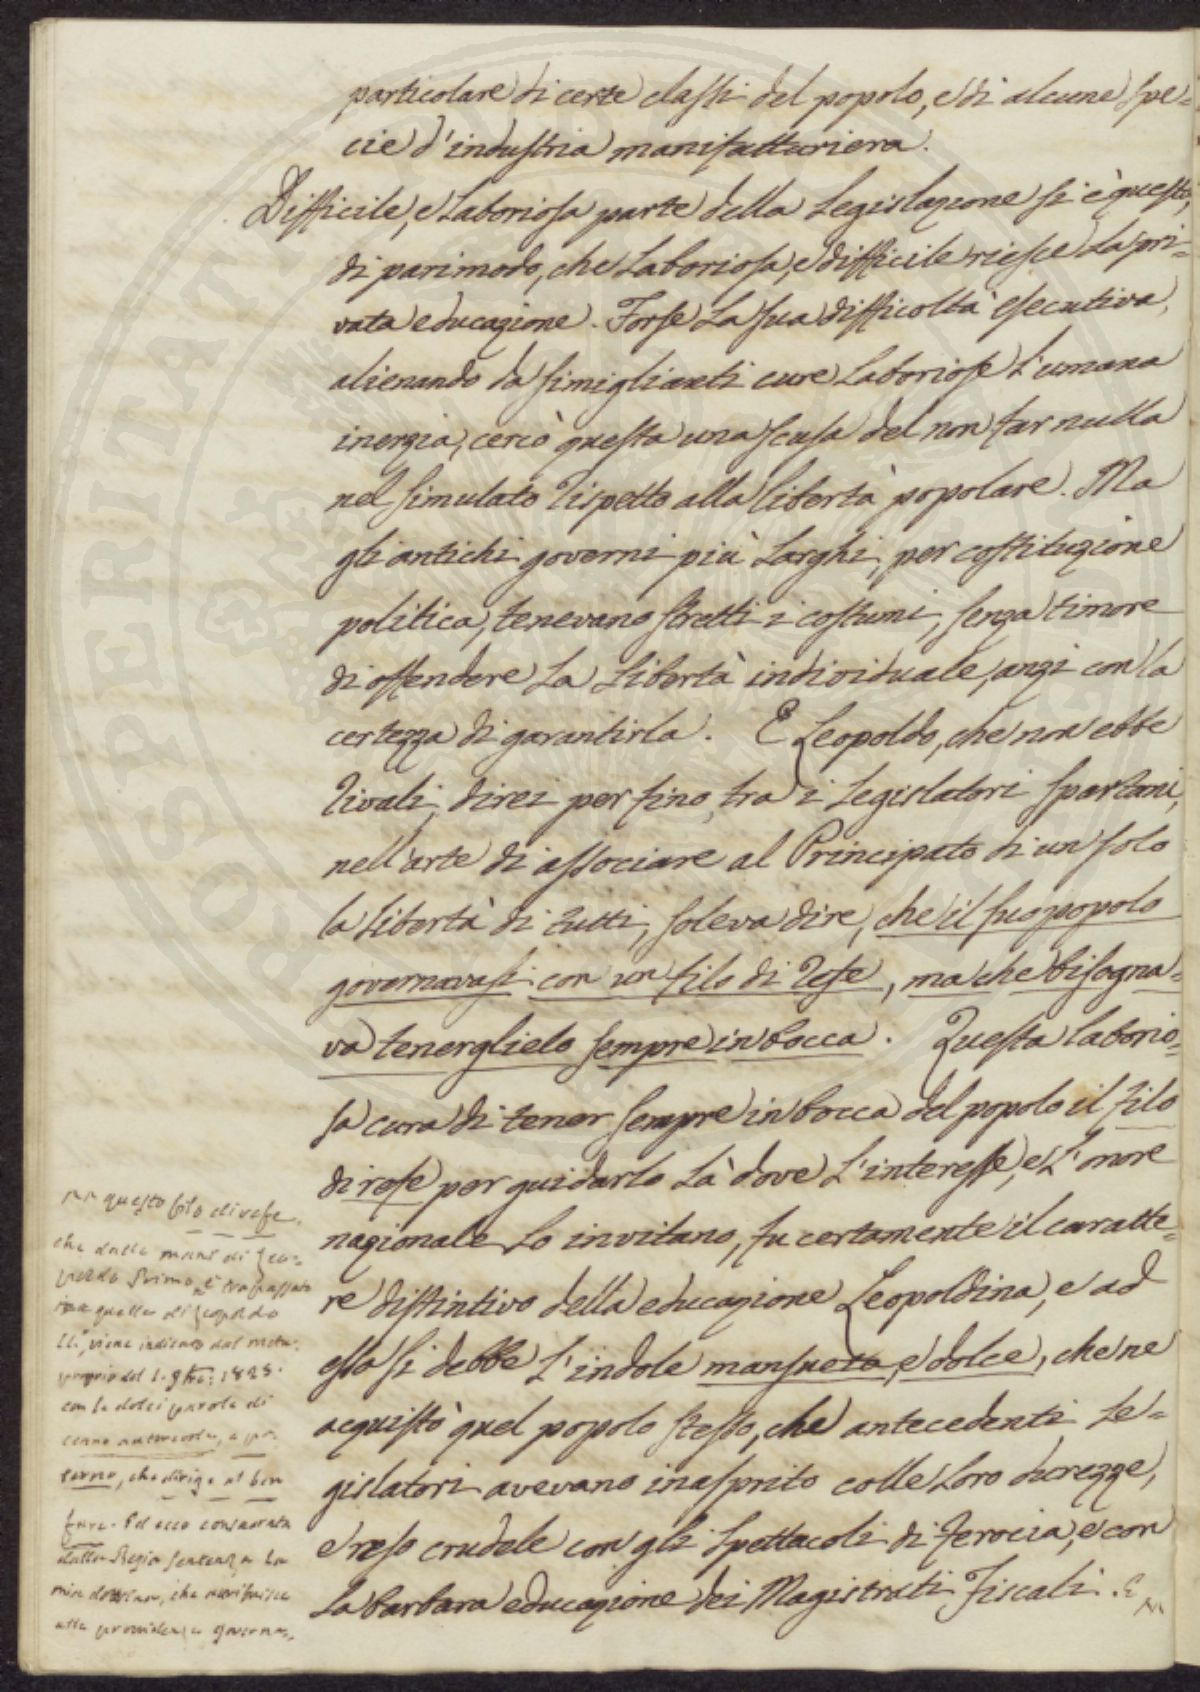 particolare di certe classi del popolo, e di alcune spe=
cie d'industria manifatturiera.
Difficile, e laboriosa parte della Legislazione si è questa,
di pari modo, che laboriosa, e difficile riesce la pri=
vata educazione. Forse la sua difficoltà esecutiva,
alienando da simiglianti cure laboriose l'umana
inerzia, cercò questa una scusa del non far nulla
nel simulato rispetto alla libertà popolare. Ma
gli antichi governi più larghi, per costituzione
politica, tenevano stretti i costumi, senza timore
di offendere la libertà individuale, anzi con la
certezza di garantirla. E Leopoldo, che non ebbe
rivali, direi per fino, tra i Legislatori Spartani,
nell'arte di associare al Principato di un solo
la libertà di tutti, soleva dire, che il suo popolo
governavasi con un filo di refe, ma che bisogna=
va tenerglielo sempre in bocca. Questa laborio=
sa cura di tener sempre in bocca del popolo il filo
di refe per guidarlo là dove l'interesse, e l'onore
nazionale lo invitano, fu certamente il caratte=
re distintivo della educazione Leopoldina, e ad
essa si debbe l'indole mansueta, e dolce, che ne
acquistò quel popolo stesso, che antecedenti Le=
gislatori avevano inasprito colle loro durezze,
e reso crudele con gli spettacoli di ferocia, e con
la barbara educazione dei Magistrati Fiscali. E
questo filo di refe,
che dalle mani di Leo=
poldo Primo è trapassato
quelle di Leopoldo
II.°, viene indicato dal motu
proprio del 1. 9bre: 1828.
con le dolci parole di
cenno autorevole, e pa=
terno, che dirige al ben
fare. Ed ecco consacrata
dalla Regia sentenza la
mia dottrina, che attribuisce
alla provvidenza governa=